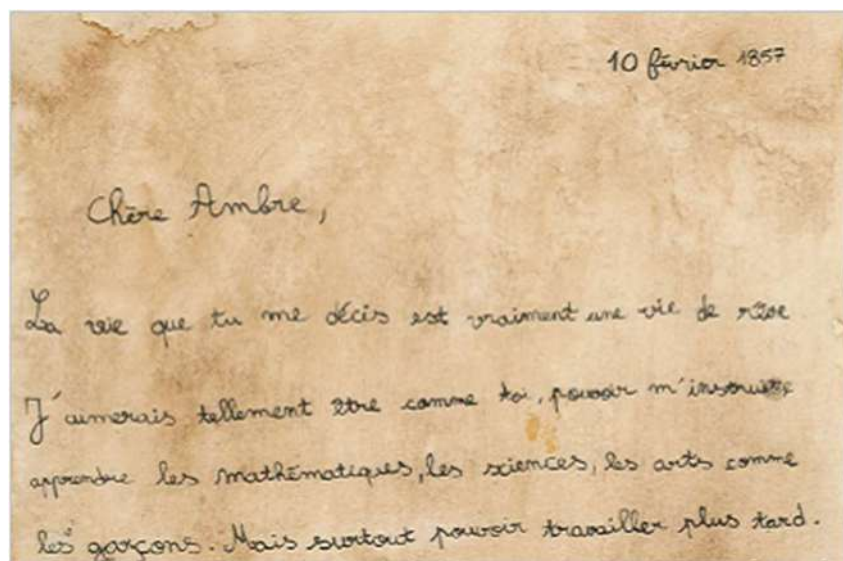 10 février 1857
Chère Ambre,
La vie que tu me décis est vraiment une vie de rêve
J'aimerais tellement être comme toi, pouvoir m'instruire
apprendre les mathématiques, les sciences, les arts comme
les garçons. Mais surtout pouvoir travailler plus tard.